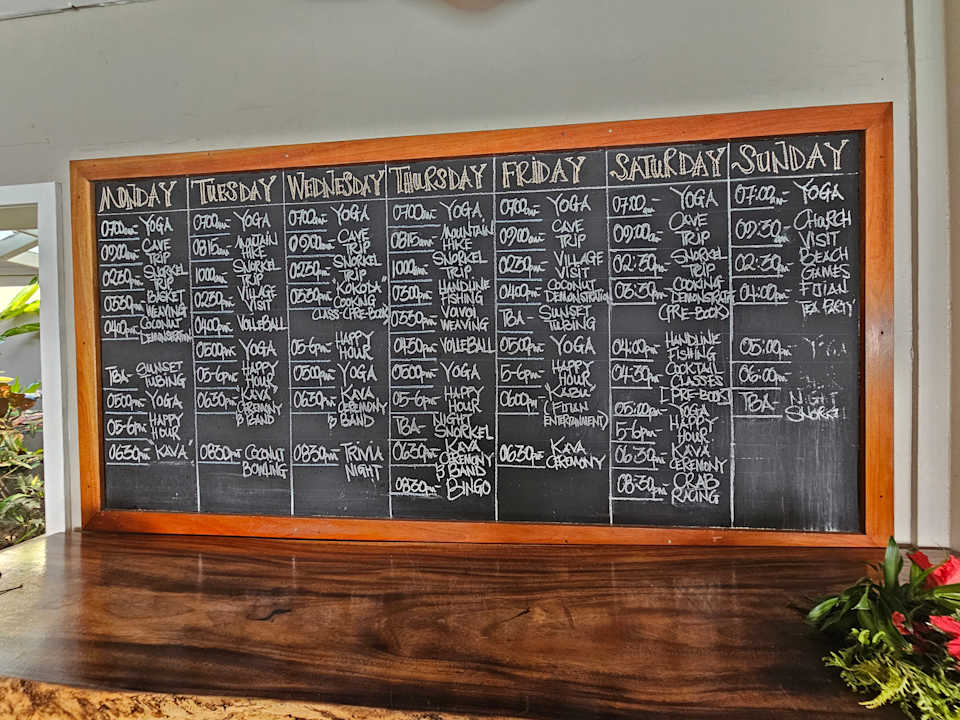 MONDAY
0700am- YOGA
0900am- CAVE
TRIP
0230pm- SNORKEL
TRIP
0330pm- BASKET
WEAVING
0400pm- COCONUT
DEMONSTRATION
TBA- SUNSET
TUBING
0500pm- YOGA
05-6pm- HAPPY
HOUR
0630pm- "KAVA"
TUESDAY
0700am- YOGA
0815am- MOUNTAIN
HIKE
1000am- SNORKEL
TRIP
0230pm- VILLAGE
VISIT
0400pm- VOLLEYBALL
0500pm- YOGA
05-6pm- HAPPY
HOUR
0630pm- KAVA
CEREMONY
& BAND
0830pm- COCONUT
BOWLING
WEDNESDAY
0700am- YOGA
0900am- CAVE
TRIP
0230pm- SNORKEL
TRIP
0330pm- "KOKODA"
COOKING
CLASS (PRE-BOOK)
05-6pm- HAPPY
HOUR
0500pm- YOGA
0630pm- KAVA
CEREMONY
& BAND
0830pm- TRIVIA
NIGHT
THURSDAY
0700am- YOGA
0815am- MOUNTAIN
HIKE
1000am- SNORKEL
TRIP
0300pm- HANDLINE
FISHING
0330pm- VOIVOI
WEAVING
0430pm- VOLLEYBALL
0500pm- YOGA
05-6pm- HAPPY
HOUR
TBA- NIGHT
SNORKEL
0630pm- KAVA
CEREMONY
& BAND
0830pm- BINGO
FRIDAY
0700am- YOGA
0900am- CAVE
TRIP
0230pm- VILLAGE
VISIT
0400pm- COCONUT
DEMONSTRATION
TBA- SUNSET
TUBING
0500pm- YOGA
5-6pm- HAPPY
HOUR
0600pm-
(FIJIAN
ENTERTAINMENT)
0630pm- KAVA
CEREMONY
SATURDAY
07:00am- YOGA
09:00am- CAVE
TRIP
02:30pm- SNORKEL
TRIP
03:30pm- COOKING
DEMONSTRATION
(PRE-BOOK)
04:00pm- HANDLINE
FISHING
04:30pm- COCKTAIL
CLASSES
[PRE-BOOK]
05:00pm- YOGA
5-6pm- HAPPY
HOUR
06:30pm- KAVA
CEREMONY
08:30pm- CRAB
RACING
SUNDAY
07:00am- YOGA
09:30am- CHURCH
VISIT
02:30pm- BEACH
GAMES
04:00pm- FIJIAN
TEA PARTY
05:00pm- YOGA
06:00pm-
TBA- NIGHT
SNORKEL